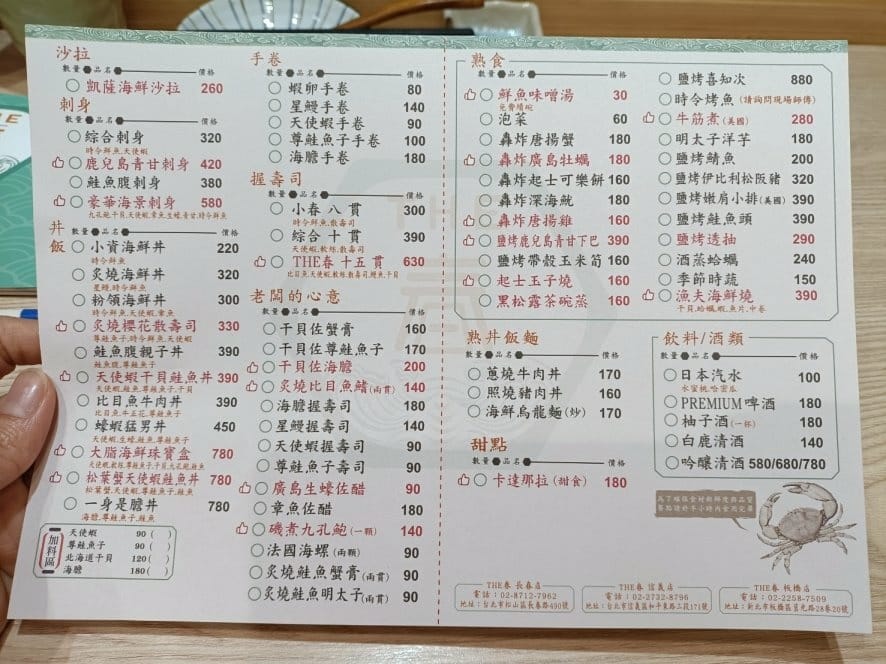 沙拉
數量 品名 價格
凱薩海鮮沙拉 260
刺身
數量 品名 價格
綜合刺身 320
時令鮮魚.天使蝦
鹿兒島青甘刺身 420
鮭魚腹刺身 380
豪華海景刺身 580
九孔鮑.干貝.天使蝦.章魚.生蠔.青甘.時令鮮魚
丼飯
數量 品名 價格
小資海鮮丼 220
時令鮮魚
炙燒海鮮丼 320
星鰻.時令鮮魚
粉領海鮮丼 300
時令鮮魚.天使蝦.章魚
炙燒櫻花散壽司 330
尊鮭魚子.時令鮮魚.天使蝦
鮭魚腹親子丼 390
鮭魚腹.尊鮭魚子
天使蝦干貝鮭魚丼 390
天使蝦.鮭魚.尊鮭魚子.干貝
比目魚牛肉丼 390
比目魚.牛五花.尊鮭魚子
蠔蝦猛男丼 450
天使蝦.生蠔.鮭魚.尊鮭魚子
大脂海鮮珠寶盒 780
松葉蟹天使蝦鮭魚丼 780
松葉蟹.天使蝦.尊鮭魚子.鮭魚
一身是膽丼 780
海膽.尊鮭魚子.鮭魚
加料區
天使蝦 90 ( )
尊鮭魚子 90 ( )
北海道干貝 120 ( )
海膽 180 ( )
手卷
數量 品名 價格
蝦卵手卷 80
星鰻手卷 140
天使蝦手卷 90
尊鮭魚子手卷 100
海膽手卷 180
握壽司
數量 品名 價格
小春 八 貫 300
時令鮮魚.散壽司
綜合 十 貫 390
THE春 十五貫 630
老闆的心意
數量 品名 價格
干貝佐蟹膏 160
干貝佐尊鮭魚子 170
干貝佐海膽 200
炙燒比目魚鰭(兩貫) 140
海膽握壽司 180
星鰻握壽司 140
天使蝦握壽司 90
尊鮭魚子壽司 90
廣島生蠔佐醋 90
章魚佐醋 180
磯煮九孔鮑(一顆) 140
法國海螺(兩顆) 90
炙燒鮭魚蟹膏(兩貫) 90
炙燒鮭魚明太子(兩貫) 90
熟食
數量 品名 價格
鮮魚味噌湯 30
免費續碗
泡菜 60
轟炸唐揚蟹 180
轟炸廣島牡蠣 180
轟炸起士可樂餅 160
轟炸深海魷 180
轟炸唐揚雞 160
鹽烤鹿兒島青甘下巴 390
鹽烤帶殼玉米筍 160
起士玉子燒 160
黑松露茶碗蒸 160
鹽烤喜知次 880
時令烤魚 (請詢問現場師傅)
牛筋煮(美國) 280
明太子洋芋 180
鹽烤鯖魚 200
鹽烤伊比利松阪豬 320
鹽烤嫩肩小排(美國) 390
鹽烤鮭魚頭 390
鹽烤透抽 290
酒蒸蛤蠣 240
季節時蔬 150
漁夫海鮮燒 390
干貝.蛤蠣.蝦.魚片.中卷
熟丼飯麵
數量 品名 價格
蔥燒牛肉丼 170
照燒豬肉丼 160
海鮮烏龍麵(炒) 170
甜點
數量 品名 價格
卡達那拉(甜食) 180
飲料/酒類
數量 品名 價格
日本汽水 100
水蜜桃.哈密瓜
PREMIUM啤酒 180
柚子酒(一杯) 180
白鹿清酒 140
吟釀清酒 580/680/780
為了確保食材新鮮度與品質
餐點請於半小時內食用完畢
THE春 長春店
電話：02-8712-7962
地址：台北市松山區長春路490號
THE春 信義店
電話：02-2732-8796
地址：台北市信義區和平東路三段171號
THE春 板橋店
電話：02-2258-7509